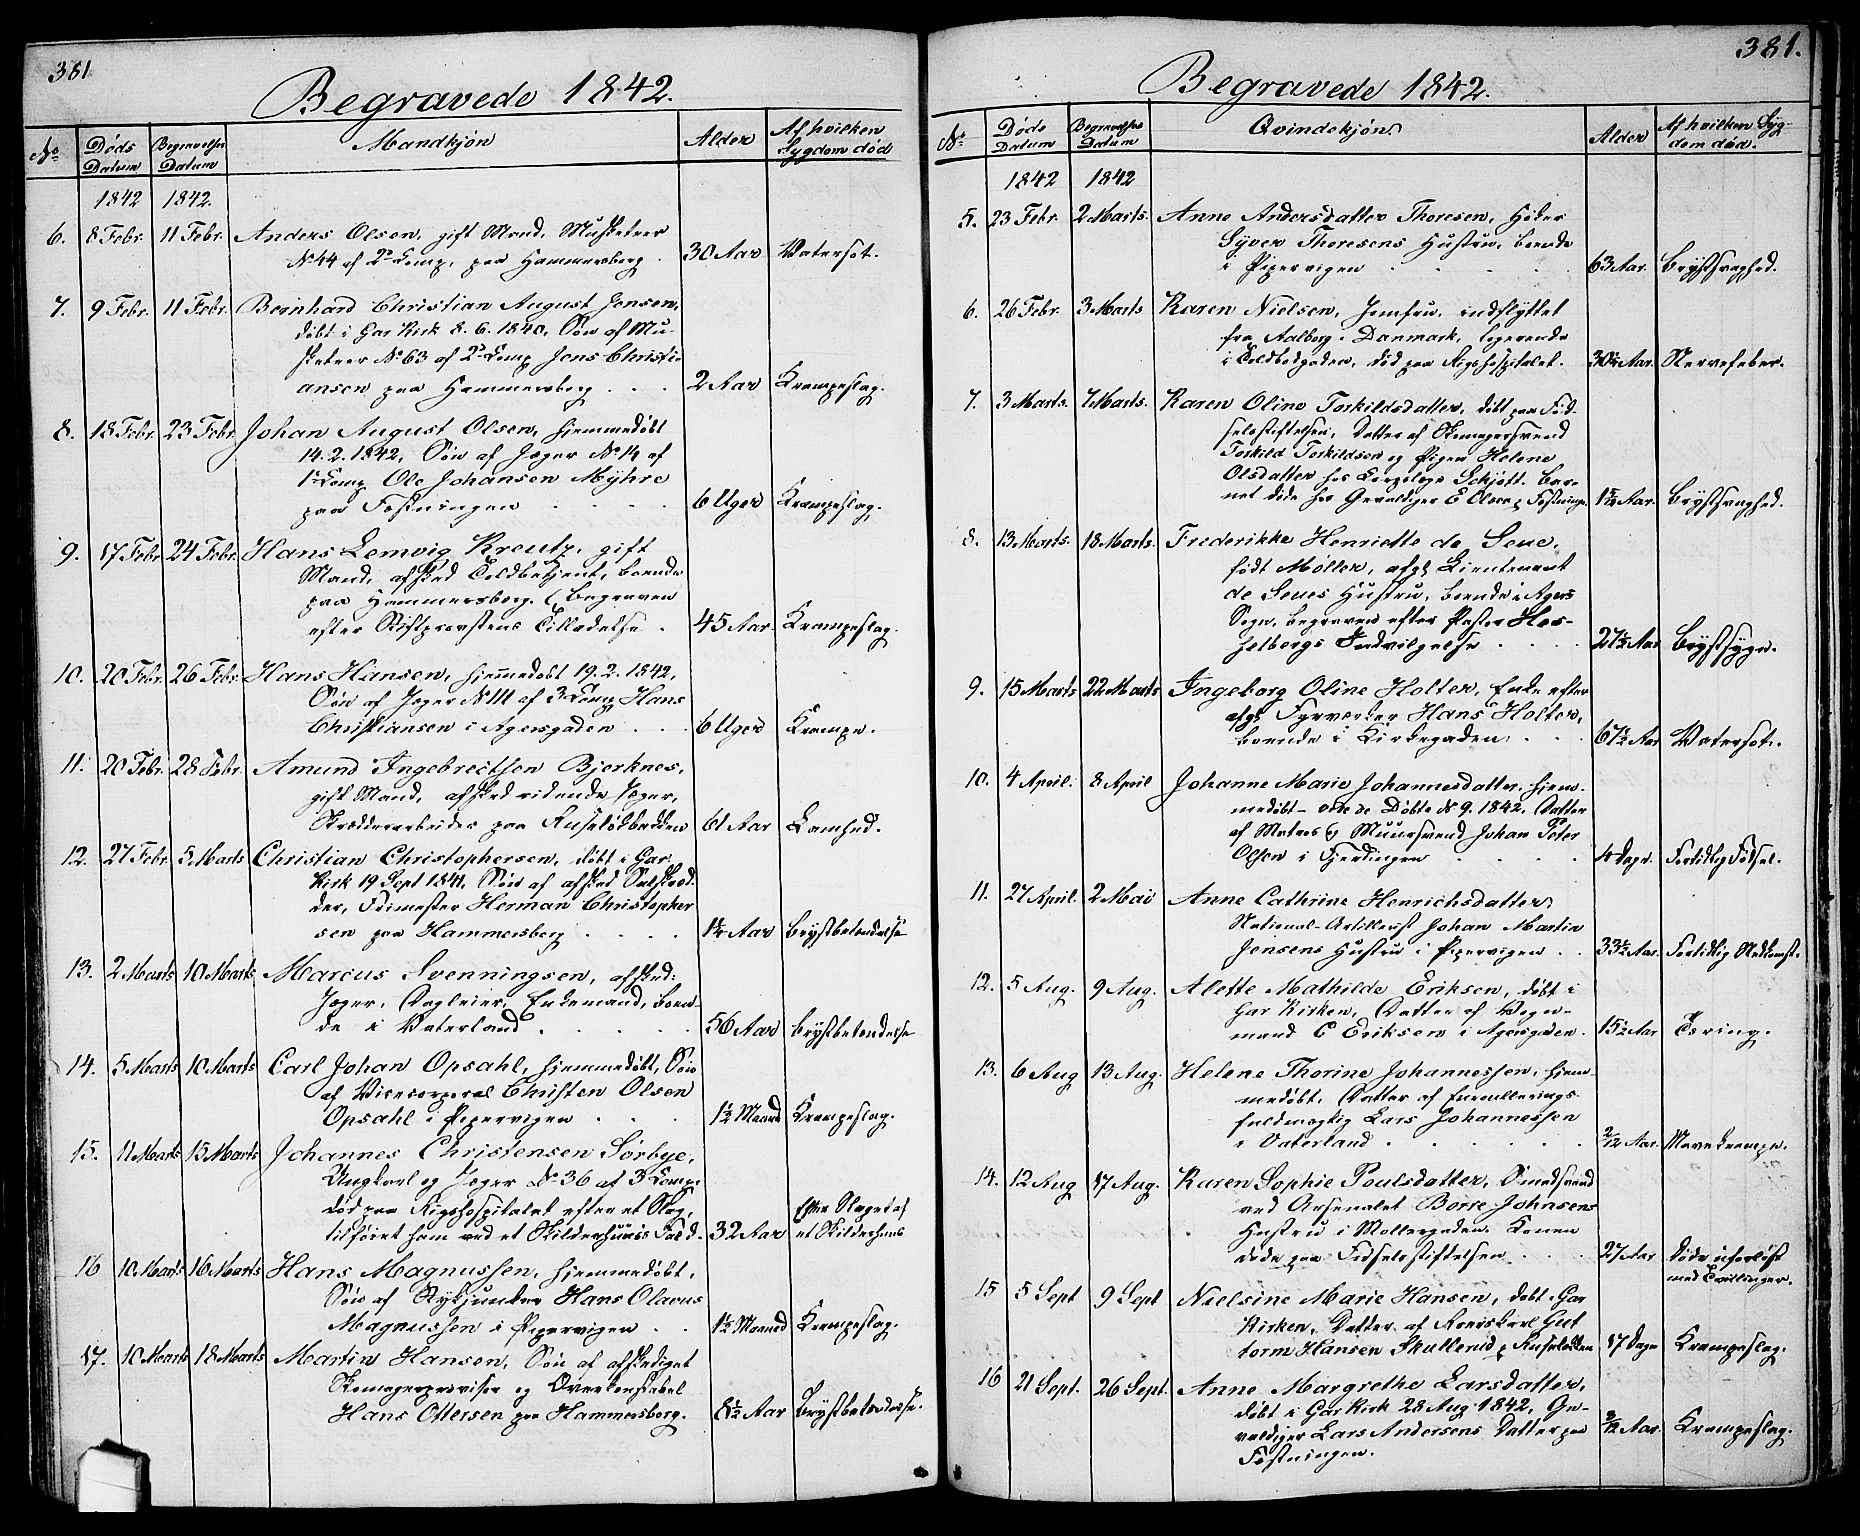 381
Begravede 1842.
No Døds Datum Begravelses Datum Mandkjøn Alder Af hvilken Sygdom død
1842 1842.
6. 8 Febr. 11 Febr. Anders Olsen, gift Mand, Musketeer
No 44 af 2. Comp. paa Hammersberg . 30 Aar Vatersot.
7. 9 Febr. 11 Febr. Bernhard Christian August Jensen,
døbt i Gar Kirk 8. 6. 1840, Søn af Mu-
sketeer No 63 af 2. Comp Jens Christi
ansen paa Hammersberg . . . 2 Aar Krampeslag.
8. 18 Febr. 23 Febr. Johan August Olsen, hjemmedøbt
14. 2. 1842, Søn af Jæger No 14 af
1. Comp Ole Johansen Myhre
paa Fæstningen . . . . 6 Uger Krampeslag.
9. 17 Febr. 24 Febr. Hans Lemvig Kreutz, gift
Mand, afsked Toldbetjent, boende
paa Hammersberg. (Begraven
efter Stiftprovstens Tilladelse . 45 Aar. Krampeslag.
10. 20 Febr. 26 Febr. Hans Hansen, hjemmedøbt 19. 2. 1842,
Søn af Jæger No 111 af 3. Comp Hans
Christiansen i Agersgaden . . . 6 Uger Krampe.
11. 20 Febr. 28 Febr. Amund Ingebrectsen Bjerknes,
gift Mand, afsked ridende Jæger,
Skrædderarbeider paa Ruseløkbakken 61 Aar Lamhed.
12. 27 Febr. 5 Marts Christian Christophersen, døbt i Gar.
Kirk 19 Sept 1841, Søn af afsked
der, Herman Christopher
sen paa Hammersberg . . . . Aar Brystbetendelse
13. 2 Marts 10 Marts Marcus Svenningsen, afsked:
Jæger, Dagleier, Enkemand, boen-
de i Vaterland . . . . . 56 Aar Brystbetendelse
14. 5 Marts 10 Marts Carl Johan Opsahl, hjemmedøbt, Søn
af Vicecorporal Christen Olsen
Opsahl i Pipervigen . . . 1½ Maaned Krampeslag.
15. 11 Marts 15 Marts Johannes Christensen Sørbye,
Ungkarl og Jæger No 36 af 3 Comp.
død paa Rigshospitalet efter et Slag,
tilføiet ham ved et Skilderhuus's Fald. 32 Aar Efter Slaget af et Skilderhuus
16 10 Marts 16 Marts Hans Magnussen, hjemmedøbt,
Søn af Stykjunker Hans Olavus
Magnussen i Pipervigen . . 1½ Maaned Krampeslag.
17. 10 Marts 18 Marts Martin Hansen, Søn af afskediget
Skomager og Overkonstabel
Hans Ottersen paa Hammersborg. 8½ Aar Brystbetendelse.
381.
Begravede 1842.
No Døds Datum Begravelses Datum Qvindekjøn Alder Af hvilken Syg-
dom død.
1842 1842
5. 23 Febr. 2 Marts. Anne Andersdatter Thoresen, Høker
Syver Thoresens Hustru, boende
i Pipervigen . . . . . 63 Aar. Brystsvaghed.
6. 26 Febr. 3 Marts Karen Nielsen, Jomfru, indflyttet
fra Aalborg i Danmark, logerende
i Toldbodgaden, død paa Rigshospitalet. 30½ Aar. Nervefeber.
7. 3 Marts. 7 Marts. Karen Oline Torkildsdatter, døbt paa Fød-
selsstiftelsen, Datter af Skomagersvend
Torkild Torkildsen og Pigen Helene
Olsdatter hos Schjøtt. Bar-
net døde hos Gevaldiger E Olsen p Fæstningn. Aar. Brystsvaghed.
8. 13 Marts. 18 Marts. Frederikke Henriette de Seue,
født Møller, afg Lieutenant
de Seues Hustru, boende i Agers
Sogn, begraven efter Pastor Hes-
selbergs Indvilgelse . . . . 27½ Aar Brystsyge.
9. 15 Marts 22 Marts Ingeborg Oline Holter, Enke efter
afg Fyrværker Hans Holter,
boende i Kirkegaden. . . . 67½ Aar Vatersot.
10. 4 April. 8 April Johanne Marie Johannesdatter, hjem-
medøbt - Døbte No 9. 1842, Datter
af Matros og Muursvend Johan Peter
Olsen i Fjerdingen . . . . 4 Dage. Fortidlig Fødsel.
11. 27 April. 2 Mai Anne Cathrine Henrichsdatter,
National-Artillerist Johan Martin
Jensens Hustru i Pipervigen . . 33½ Aar. Fortidlig Nedkomst.
12. 5 Aug. 9 Aug. Alette Mathilde Eriksen, døbt i
Gar Kirken, Datter af Vogn-
mand C Eriksen i Agersgaden. 15½ Aar Tæring.
13. 6 Aug 13 Aug. Helene Thorine Johannessen, hjem-
medøbt, Datter af Enroullerings-
fuldmægtig Lars Johannessen
i Vaterland . . . . . 2/12 Aar. Mavekrampe.
14. 12 Aug 17 Aug. Karen Sophie Poulsdatter, Smedsvend
ved Arsenalet Borre Johnsens
Hustru i Møllergaden. Konen
døde paa Fødselsstiftelsen . . . 27 Aar Døde uforløst
med Tvillinger.
15 5 Sept 9 Sept Nielsine Marie Hansen, døbt i Gar
Kirken, Datter af Gut
torm Hansen Skullerud p Ruseløkken 17 Dage Krampeslag.
16 21 Sept. 26 Sept. Anne Margrethe Larsdatter,
døbt i Gar Kirk 28 Aug 1842, Ge-
valdiger Lars Andersens Datter paa
Fæstningen. Aar. Krampeslag.